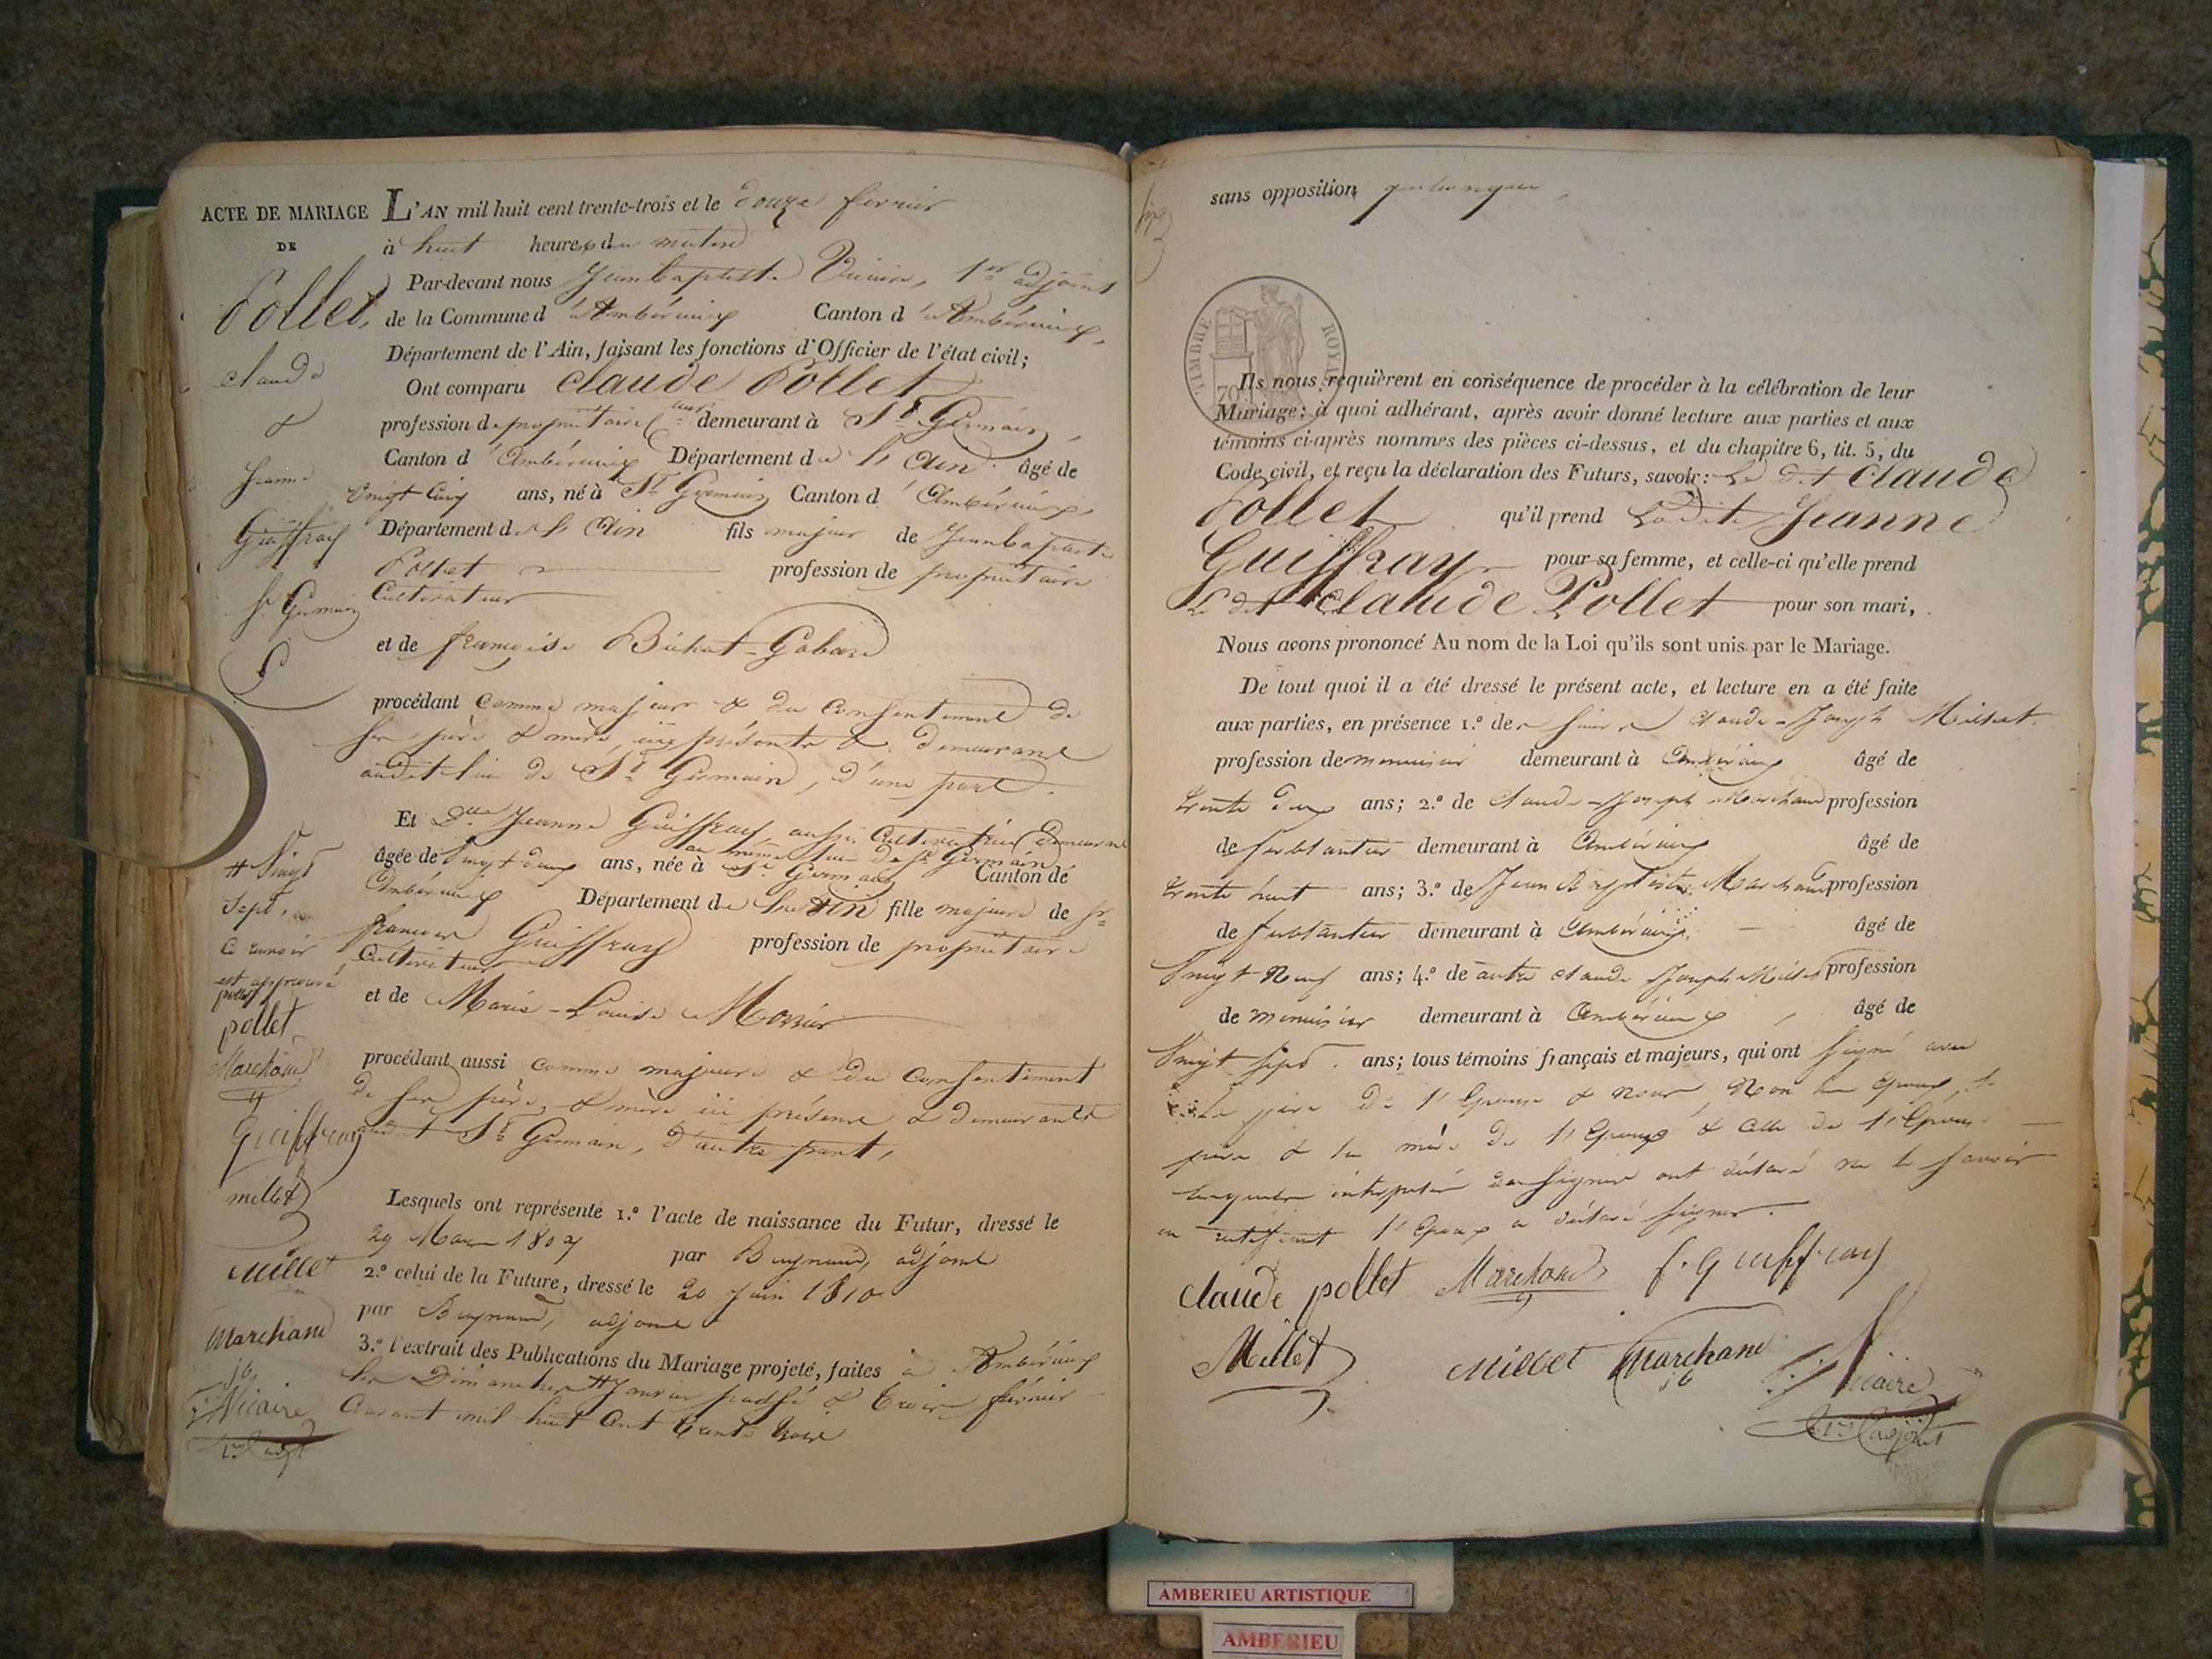 ACTE DE MARIAGE
DE
Pollet,
claude
&
Jeanne
Guiffray
St Germain
L'AN mil huit cent trente-trois et le douze février
à huit heures du matin
Par-devant nous Jean baptiste Vicaire, 1er adjoint
de la Commune d'Ambérieux Canton d'Ambérieux,
Département de l'Ain, faisant les fonctions d'Officier de l'état civil;
Ont comparu Claude Pollet
profession de propriétaire demeurant à St Germain,
Canton d'Ambérieux Département de l'Ain âgé de
Vingt Cinq ans, né à St Germain Canton d'Ambérieux,
Département de l'Ain fils majeur de Jean baptiste
Pollet profession de propriétaire
Cultivateur
et de françoise Béchat-Gobard
procédant comme majeur & du Consentement de
ses père & mère, ici présents & demeurant
audit lieu de St Germain, d'une part.
Et Dlle Jeanne Guiffray, aussi Cultivatrice Demeurant
au même lieu de St Germain
âgée de vingt deux ans, née à St Germain Canton de
Ambérieux Département de l'Ain fille majeure de sr
françois Guiffray profession de propriétaire
Cultivateur
et de Marie-Louise
procédant aussi comme majeure & du Consentement
de ses père & mère ici présents & demeurants
audit St Germain, d'autre part,
Lesquels ont représenté 1.° l'acte de naissance du Futur, dressé le
29 Mars 1807 par Buynand, adjoint
2.° celui de la Future, dressé le 20 Juin 1810
par Buynand, adjoint
3.° l'extrait des Publications du Mariage projeté, faites à Ambérieux
les Dimanches # Janvier passé & trois février
Courant mil huit Cent trente trois
# Vingt
Sept,
Ce renvoi
est approuvé
pollet
Marchand
Guiffray
millet
Millet
Marchand
Vicaire
1er adjt
sans opposition quelconque,
TIMBRE ROYAL
70
Ils nous requièrent en conséquence de procéder à la célébration de leur
Mariage; à quoi adhérant, après avoir donné lecture aux parties et aux
témoins ci-après nommés des pièces ci-dessus, et du chapitre 6, tit. 5, du
Code civil, et reçu la déclaration des Futurs, savoir: Le dit Claude
Pollet qu'il prend Ladite Jeanne
Guiffray pour sa femme, et celle-ci qu'elle prend
Le dit Claude Pollet pour son mari,
Nous avons prononcé Au nom de la Loi qu'ils sont unis par le Mariage.
De tout quoi il a été dressé le présent acte, et lecture en a été faite
aux parties, en présence 1.° des sieurs Claude-Joseph Millet
profession de menuisier demeurant à Ambérieux âgé de
trente deux ans; 2.° de Claude-Joseph Marchand profession
de ferblantier demeurant à Ambérieux âgé de
trente huit ans; 3.° de Jean Baptiste Marchand profession
de ferblantier demeurant à Ambérieux, âgé de
Vingt Neuf ans; 4.° de autre Claude Joseph Millet profession
de menuisier demeurant à Ambérieux, âgé de
Vingt Sept ans; tous témoins français et majeurs, qui ont signé avec
Le père de l'épouse & nous, Non les époux, le
père & la mère de l'époux & celle de l'épouse
lesquels interpellés de signer ont déclaré ne le savoir
en rectifiant l'époux a déclaré signer.
claude pollet Marchand f. Guiffray
Millet Millet Marchand Vicaire
1er adjoint
AMBERIEU ARTISTIQUE
AMBERIEU